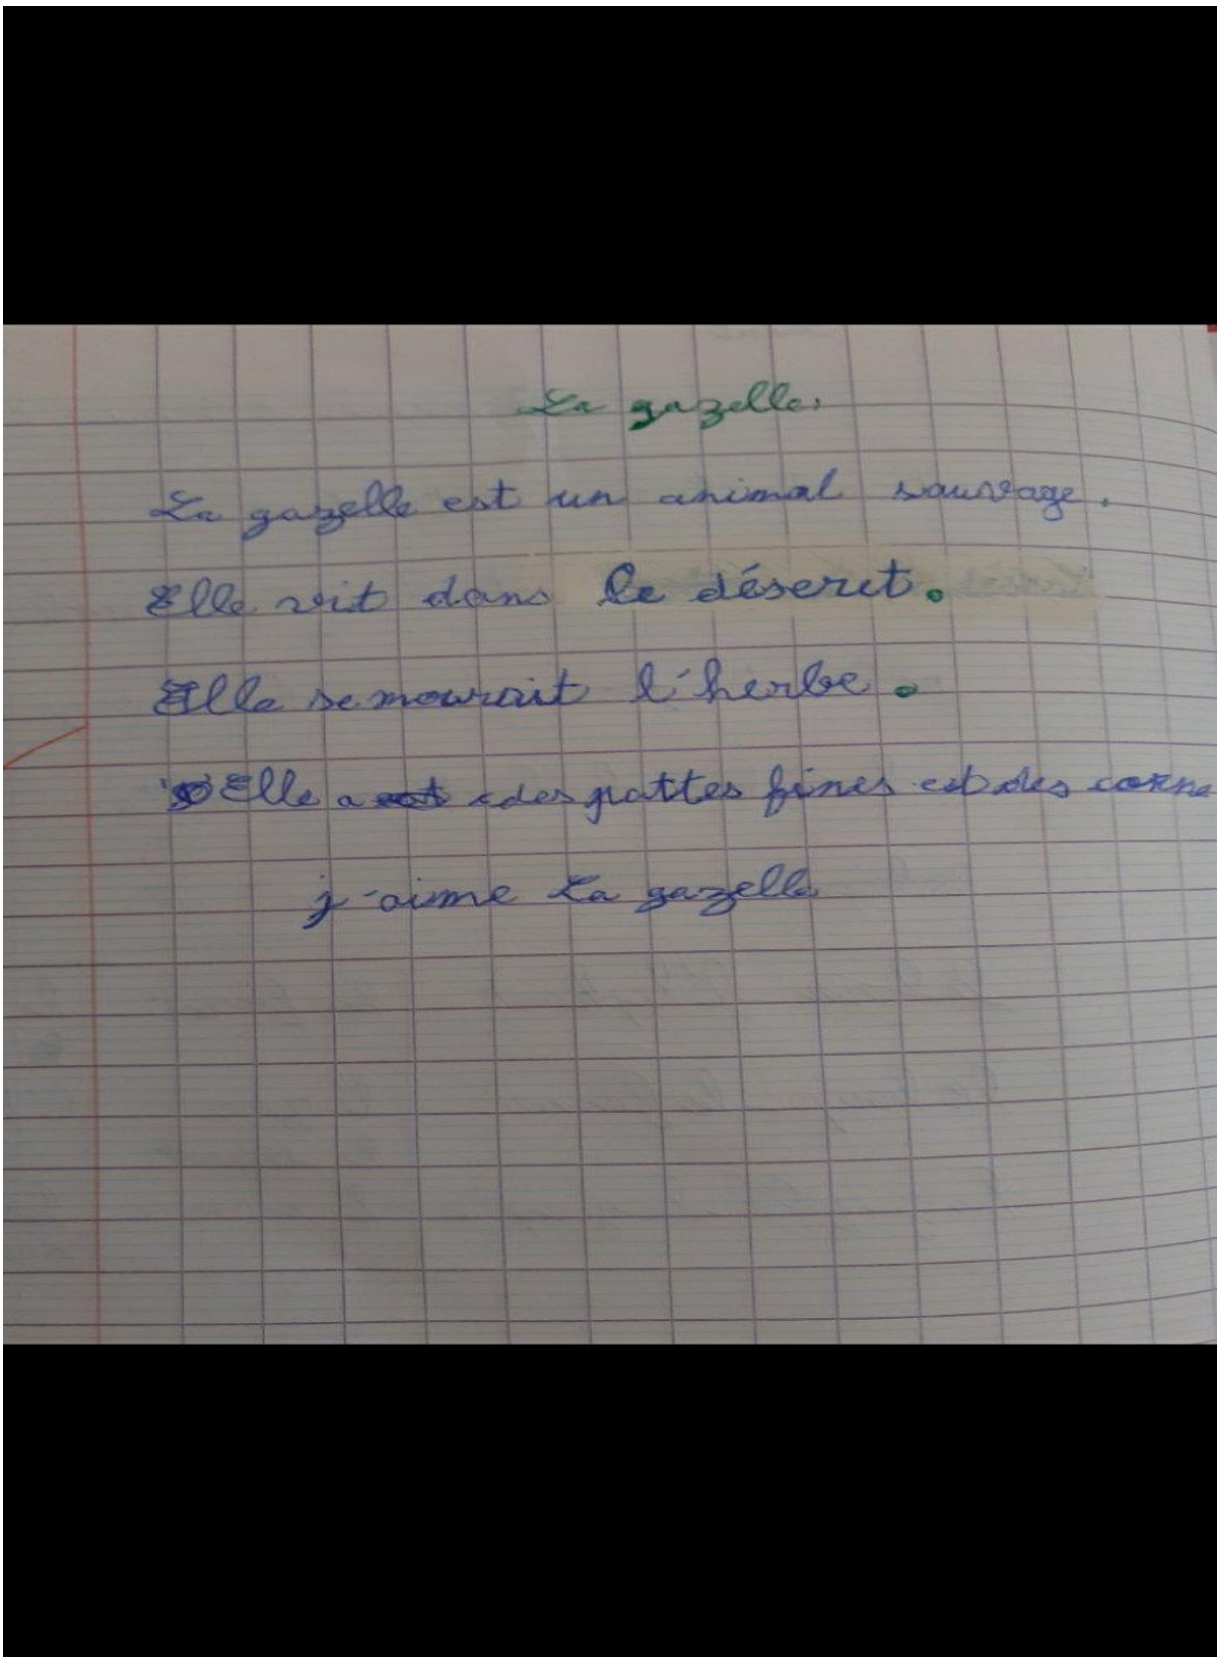 La gazelle.
La gazelle est un animal sauvage.
Elle vit dans le déseret.
Elle se mourait l'herbe.
Elle a des pattes fines et des corne
j'aime La gazelle